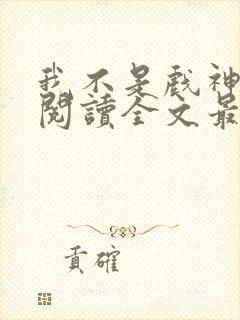 我不是戲神
閱讀全文最
貢確